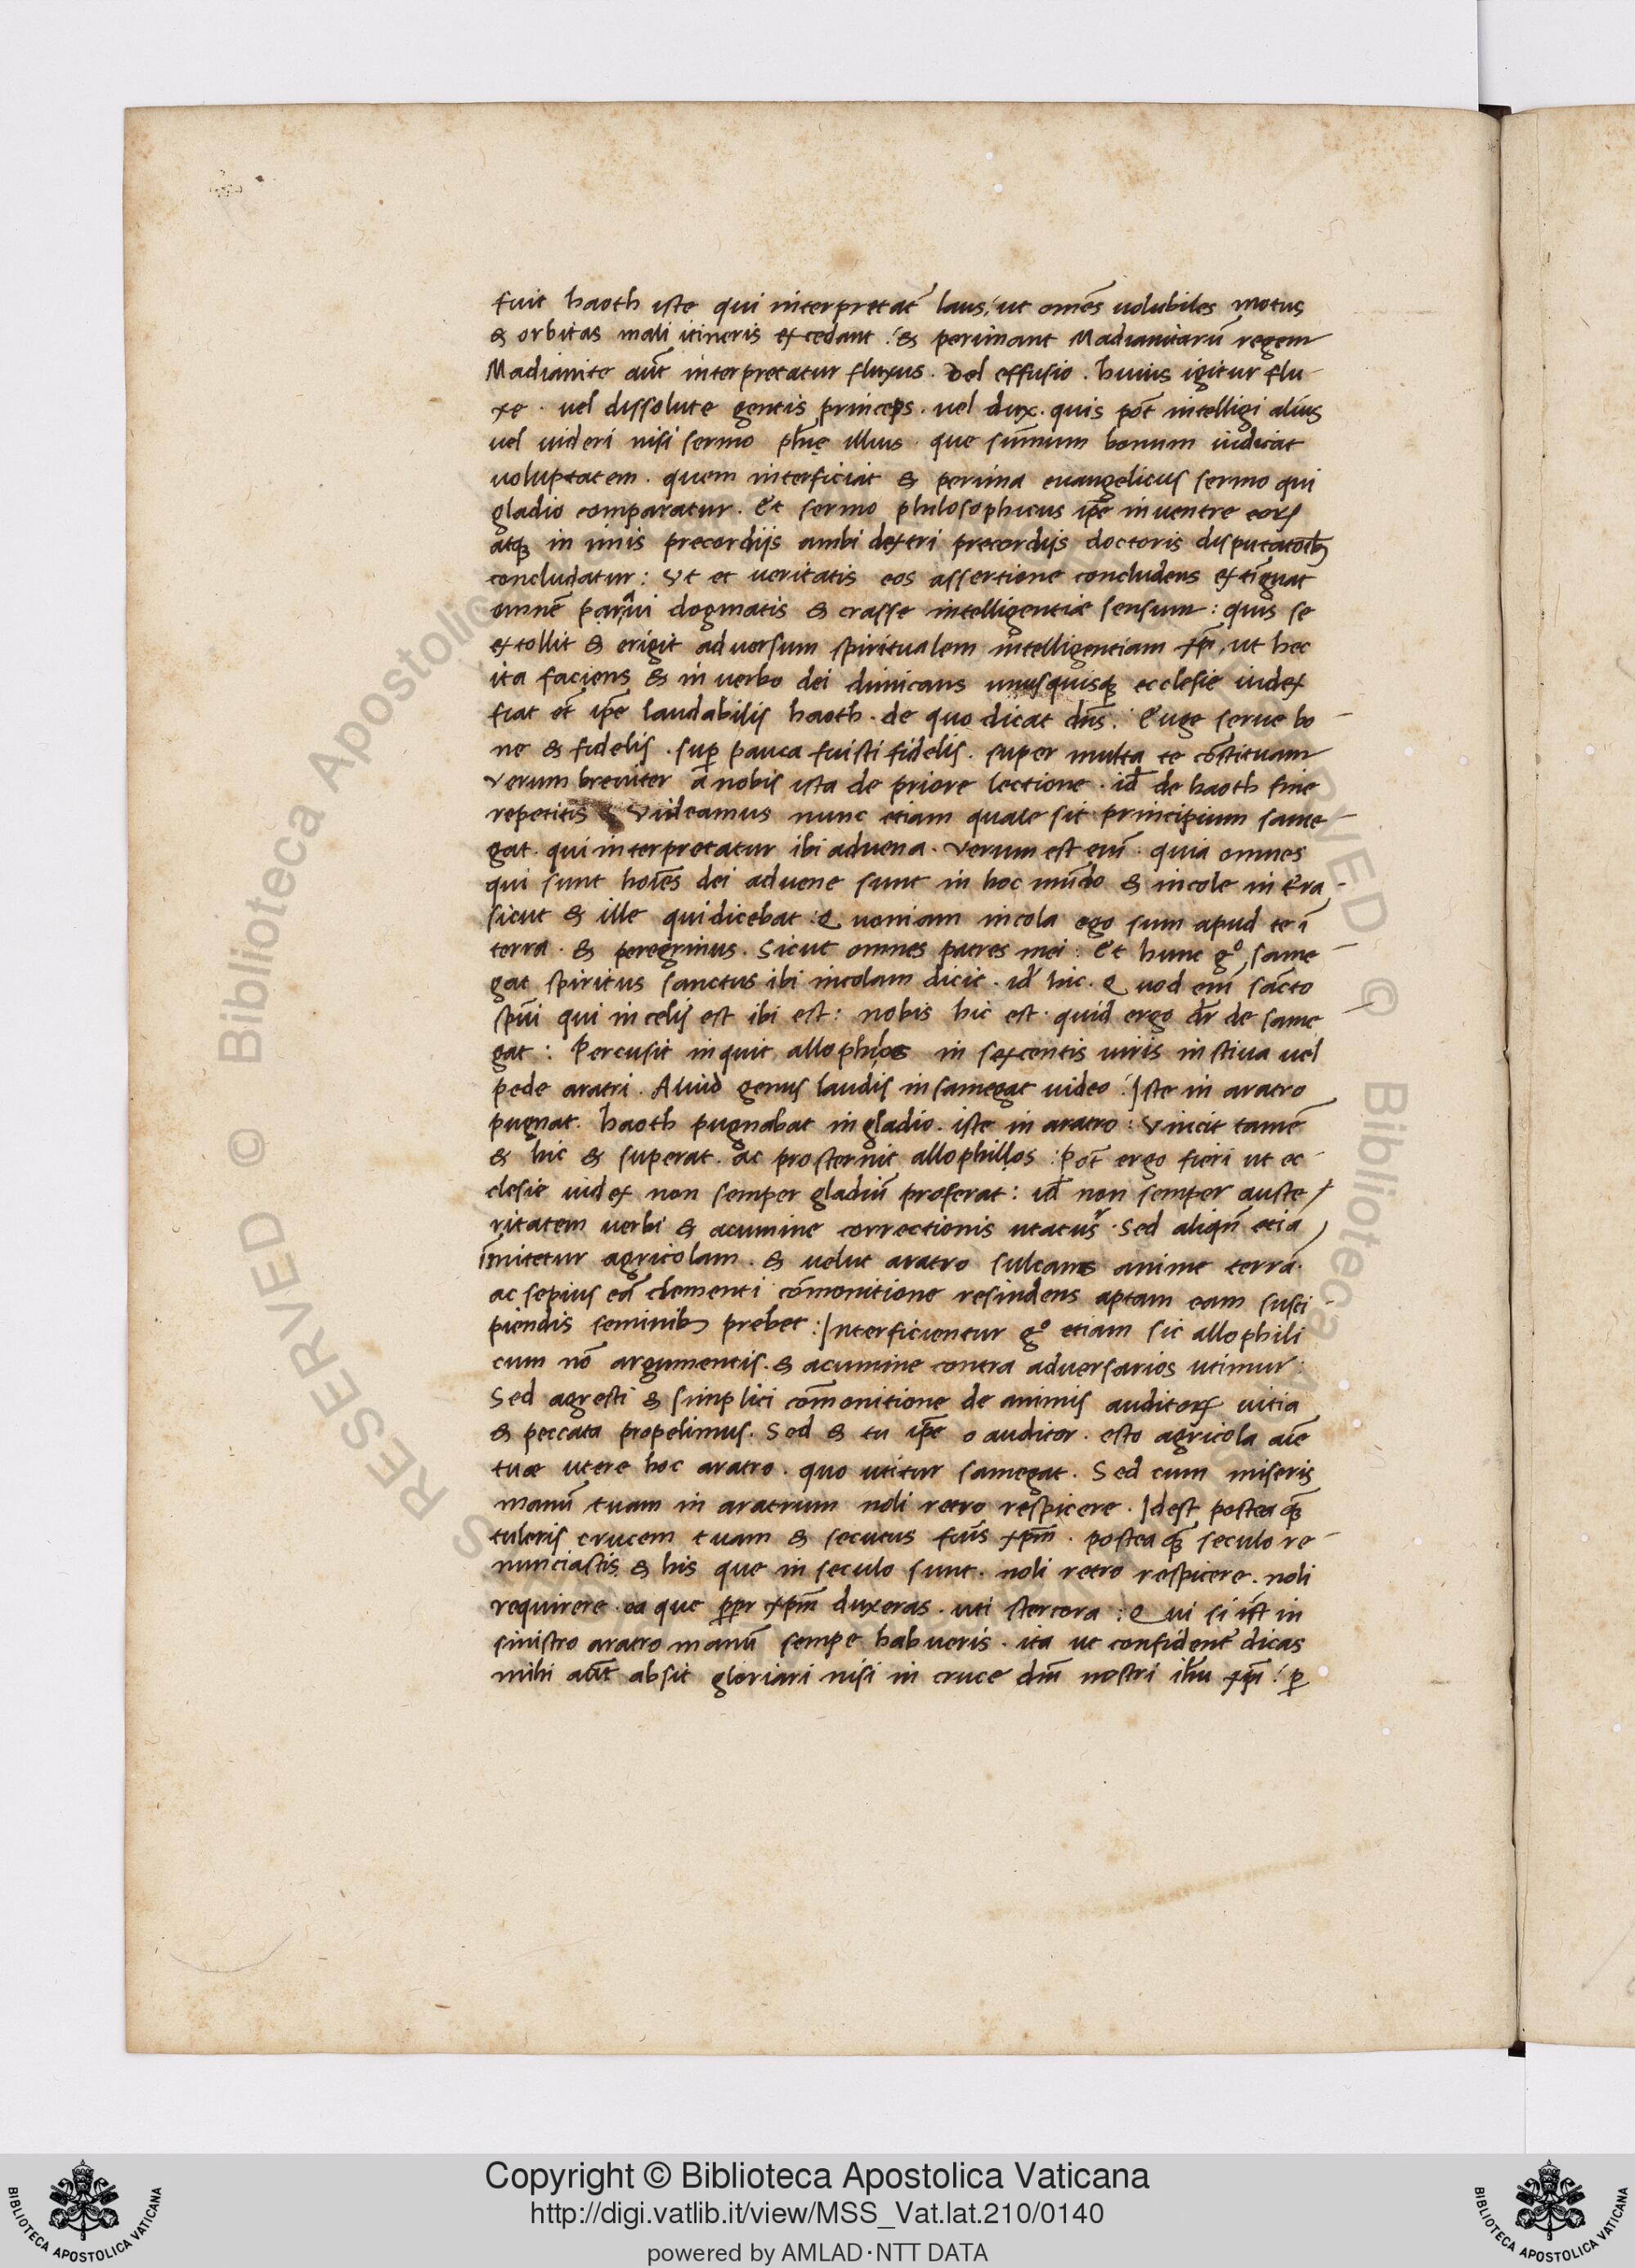 fuit haoth iste qui interpretat̄ laus: ut om̄es uolubiles motus
& orbitas mali itineris excedant: & perimant Madianitarū regem
Madianite aūt interpretatur fluxus. vel effusio. huius igitur flu-
xe. uel dissolute gentis princeps. uel dux. quis pōt intelligi alius
uel uideri nisi sermo ph̄ie illius. que sum̄um bonum iudicat
uoluptatem. quem interficiat & perima euangelicus sermo qui
gladio comparatur. Et sermo philosophicus ip̄e in uentre eoꝝ
atqꝫ in imis precordijs ambi dextri precordijs doctoris disputatōibꝫ
concludatur: Ut et ueritatis eos assertione concludens extīguat
omnē paraui dogmatis & crasse intelligentiæ sensum: quis se
extollit & erigit aduersum spiritualem intelligentiam xp̄i, ut hec
ita faciens & in uerbo dei dimicans unusquisqꝫ ecclesie iudex
fiat et̄ ip̄e laudabilis haoth. de quo dicat dn̄s. Euge serue bo-
ne & fidelis. suꝑ pauca fuisti fidelis. super multa te cōstituam
Verum breuiter a nobis ista de priore lectione. id̄ de haoth fine
repetitis Videamus nunc etiam quale sit principium same-
gat. qui interpretatur ibi aduena. Verum est eni᷉. quia omnes
qui sunt hoīes dei aduene sunt in hoc mūdo & incole in t̄ra-
sicut & ille qui dicebat: Quoniam incola ego sum apud te ī
terra. & peregrinus. Sicut omnes patres mei: Et hunc gͦ same-
gat spiritus sanctus ibi incolam dicit. id̄ hic. Quod eni᷉ sācto
spūi qui in celis est ibi est: nobis hic est. quid ergo dr̄ de same-
gat: Percusit inquit allophilos in sexcentis uiris in stiua uel
pede aratri. Aliud genus laudis in samegat uideo: Iste in aratro
pugnat. haoth pugnabat in gladio. iste in aratro: Vincit tamē
& hic & superat. ac prosternit allophillos: Pōt ergo fieri ut ec-
clesie iudex non semper gladiū proferat: id̄ non semper auste-
ritatem uerbi & acumine correctionis utatur. Sed aliqn̄ etiā
īmitetur agricolam. & uelut aratro sulcans anime terrā.
ac sepius eā clementi cōmonitione resindens aptam eam susci-
piendis seminibꝫ prebet: Interficientur gͦ etiam sic allophili
cum nō argumentis. & acumine contra aduersarios utimur.
Sed agresti & simplici com̄onitione de animis auditoꝝ uitia
& peccata propelimus. Sed & tu ip̄e o auditor. esto agricola aīe
tuæ utere hoc aratro. quo utitur samegat. Sed cum miseris
manū tuam in aratrum noli retro respicere. Idest posteaqꝫ
tuleris crucem tuam & secutus fūis xp̄m. posteaqꝫ seculo re-
nunciastis & his que in seculo sunt. noli retro respicere. noli
requirere ea que ꝓpr xp̄m duxeras. uti stercora: Qui si ist̄ in
sinistro aratro manū sempe habueris. ita ut confident̄ dicas
mihi aūt absit gloriari nisi in cruce dn̄i nostri ih̄u xp̄i: ꝑ
Copyright © Biblioteca Apostolica Vaticana
http://digi.vatlib.it/view/MSS_Vat.lat.210/0140
powered by AMLAD·NTT DATA